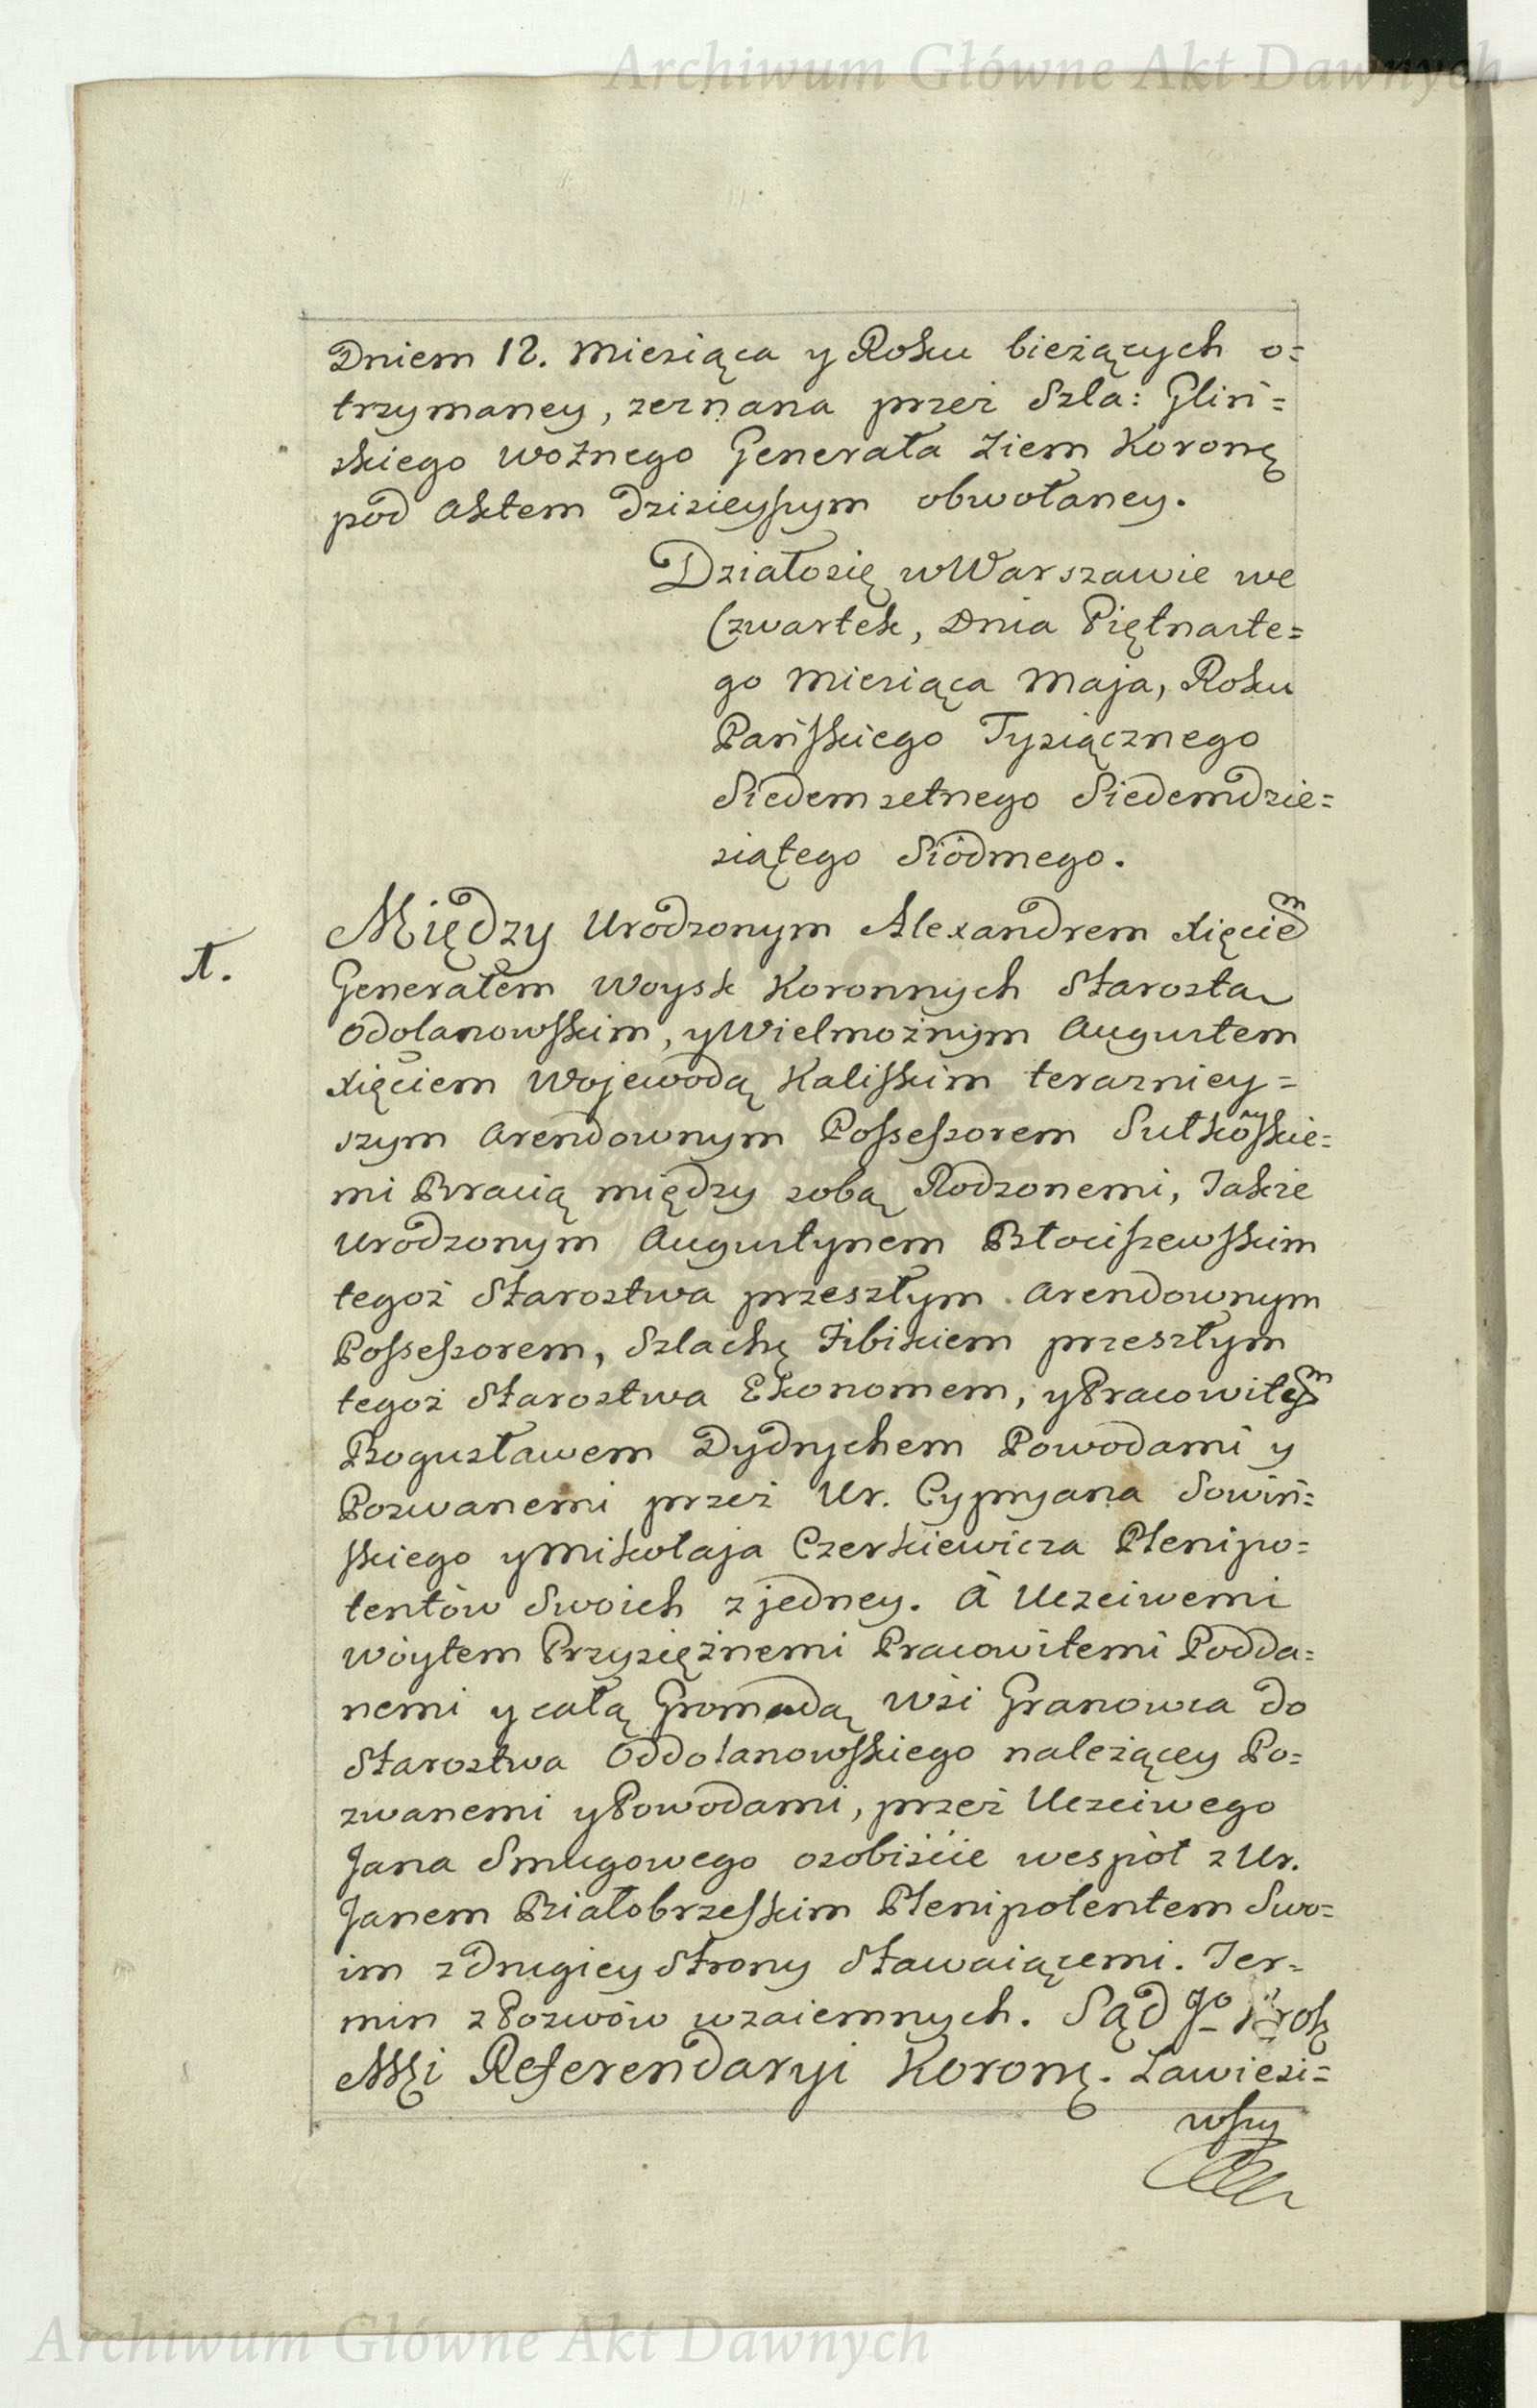 Archiwum Główne Akt Dawnych
Dniem 12. Miesiąca y Roku bieżących o=
trzymaney, zeznana przez Szla: Gliń=
skiego Woźnego Generała Ziem Koronę
pod Aktem dzisieyszym obwołaney.
Działosię w Warszawie we
Czwartek, Dnia Piętnaste=
go Miesiąca Maja, Roku
Pańskiego Tysiącznego
Siedemsetnego Siedemdzie=
siątego Siódmego.
Między Urodzonym Alexandrem Xięciem
A.
Generałem Woysk Koronnych Starostą
Odolanowskim, y Wielmożnym Augustem
Xięciem Wojewodą Kaliskim terazniey=
szym Arendownym Possessorem Sułkowskie=
mi Bracią między sobą Rodzonemi, Takze
Urodzonym Augustynem Błociszewskim
tegoż Starostwa przeszłym Arendownym
Possessorem, Szlachę Żibikiem przeszłym
tegoż Starostwa Ekonomem, y Pracowitym
Bogusławem Dydrychem Powodami y
Pozwanemi przez Ur. Cypryana Sowiń=
skiego y Mikołaja Czerkiewicza Plenipo=
tentów Swoich z jedney. A Uczciwemi
Woytem Przysiężnemi Pracowitemi Podda=
nemi y całą Gromadą Wsi Granowca do
Starostwa Oddolanowskiego należącey Po=
zwanemi y Powodami, przez Uczciwego
Jana Smugowego osobiście wespół z Ur.
Janem Białobrzeskim Plenipotentem Swo=
im z drugiey Strony Stawaiącemi. Ter=
min z Pozwów wzaiemnych. Sąd Jo Krolę
Mści Referendaryi Koronę. Zawiesi=
wszy
Archiwum Główne Akt Dawnych